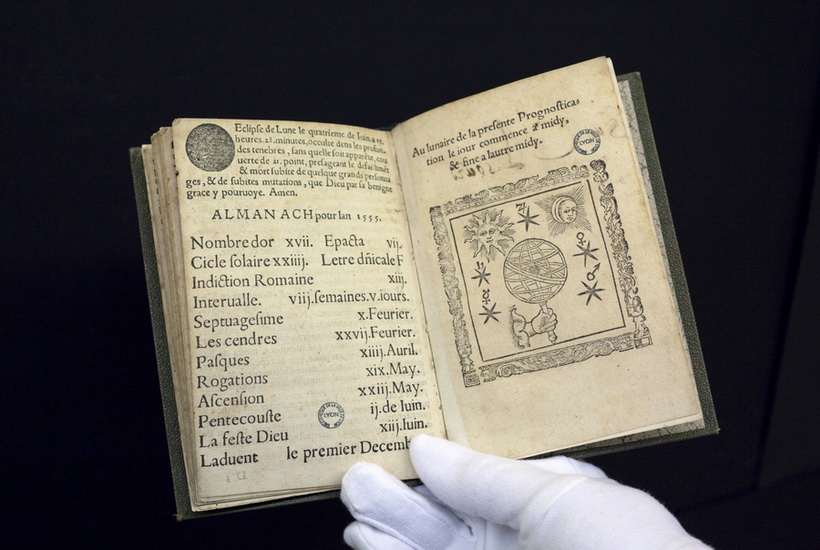 Eclipse de Lune le quatrieme de Iuin a
heures. minutes, occulte dens les profun-
des tenebres, sans quelle soit apparẽte, cou
uerte de point, presageant le
& mort subite de quelque grands personna
ges, & de subites mutations, que Dieu par sa benigne
grace y pouruoye. Amen.
ALMANACH pour lan 1555.
Nombre dor xvij. Epacta vij.
Cicle solaire xxiiij. Letre dñicale F
Indiction Romaine xiij.
Interualle. viij.semaines.v.iours.
Septuagesime x.Feurier.
Les cendres xxvij.Feurier.
Pasques xiiij.Auril.
Rogations xix.May.
Ascension xxiij.May.
Pentecouste ij.de Iuin.
La feste Dieu xiij.Iuin.
Laduent le premier Decemb
LYON
Au lunaire de la presente Prognostica-
tion le iour commence a midy,
& fine a lautre midy.
LYON